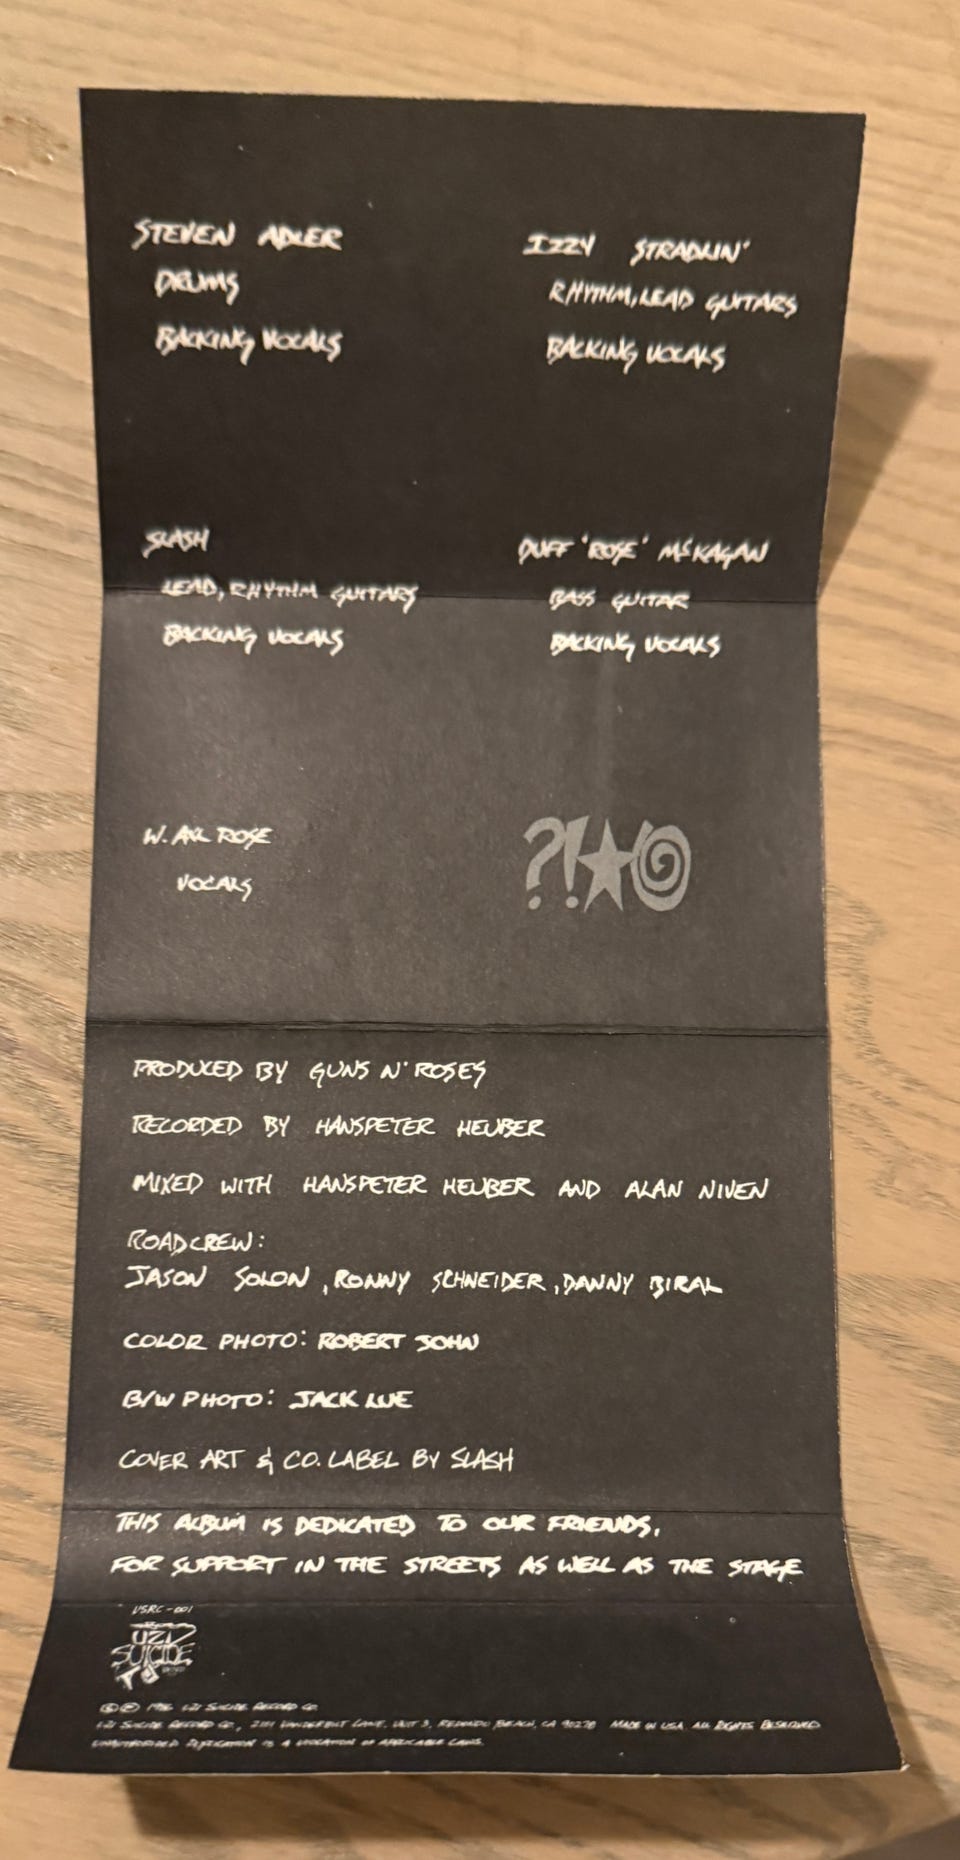 STEVEN ADLER
DRUMS
BACKING VOCALS
IZZY STRADLIN'
RHYTHM, LEAD GUITARS
BACKING VOCALS
SLASH
LEAD, RHYTHM GUITARS
BACKING VOCALS
DUFF 'ROSE' McKAGAN
BASS GUITAR
BACKING VOCALS
W. AXL ROSE
VOCALS
?!★@
PRODUCED BY GUNS N' ROSES
RECORDED BY HANSPETER HEUBER
MIXED WITH HANSPETER HEUBER AND ALAN NIVEN
ROADCREW:
JASON SOLON, RONNY SCHNEIDER, DANNY BIRAL
COLOR PHOTO: ROBERT JOHN
B/W PHOTO: JACK LUE
COVER ART & CO. LABEL BY SLASH
THIS ALBUM IS DEDICATED TO OUR FRIENDS,
FOR SUPPORT IN THE STREETS AS WELL AS THE STAGE
USRC-001
UZI
SUICIDE
© ℗ 1986 UZI SUICIDE RECORD CO.
UZI SUICIDE RECORD CO., VANDERBILT LANE, UNIT 3, REDONDO BEACH, CA 90278 MADE IN USA. ALL RIGHTS RESERVED
UNAUTHORIZED DUPLICATION IS A VIOLATION OF APPLICABLE LAWS.